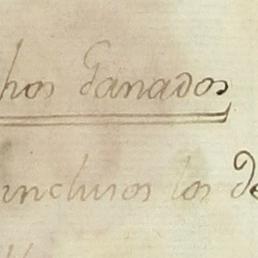 hos Ganados
inclusos los de